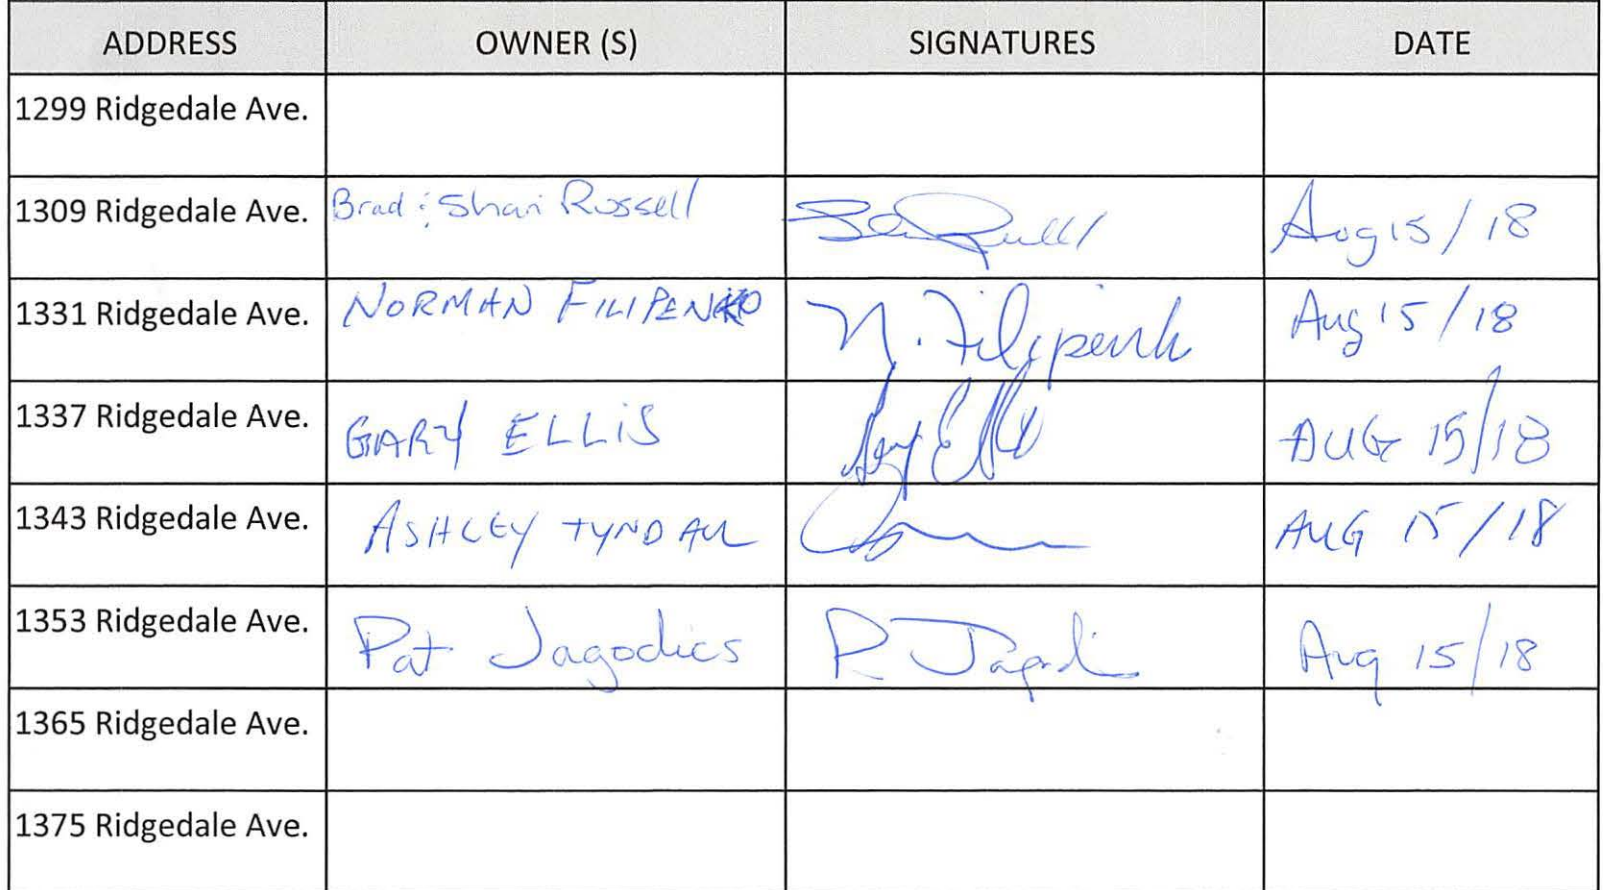 ADDRESS OWNER (S) SIGNATURES DATE
1299 Ridgedale Ave.
1309 Ridgedale Ave. Brad & Shari Russell Aug 15/18
1331 Ridgedale Ave. NORMAN FILIPENKO N. Filipenk Aug 15/18
1337 Ridgedale Ave. GARY ELLIS Gary Ellis AUG 15/18
1343 Ridgedale Ave. ASHLEY TYNDALL AUG 15/18
1353 Ridgedale Ave. Pat Jagodics P Jagodi Aug 15/18
1365 Ridgedale Ave.
1375 Ridgedale Ave.